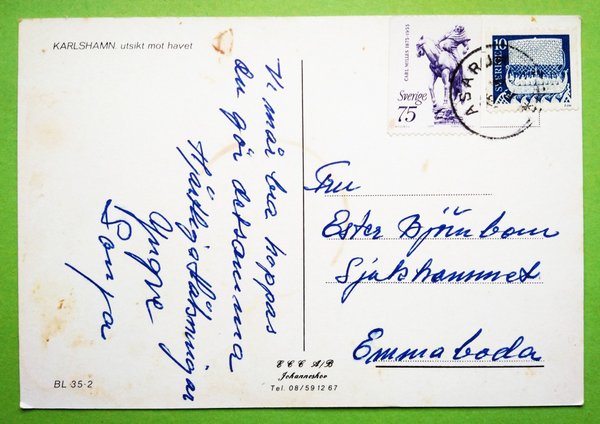 KARLSHAMN. utsikt mot havet
Vi mår bra hoppas
du gör detsamma
Hjärtliga Hälsningar
Yngve
Sonja
BL 35-2
E C C A/B
Johanneshov
Tel. 08/59 12 67
CARL MILLES 1875-1955
Sverige
75
10
SVERIGE
ASARUM
Fru
Ester Björnbom
Sjukhemmet
Emmaboda